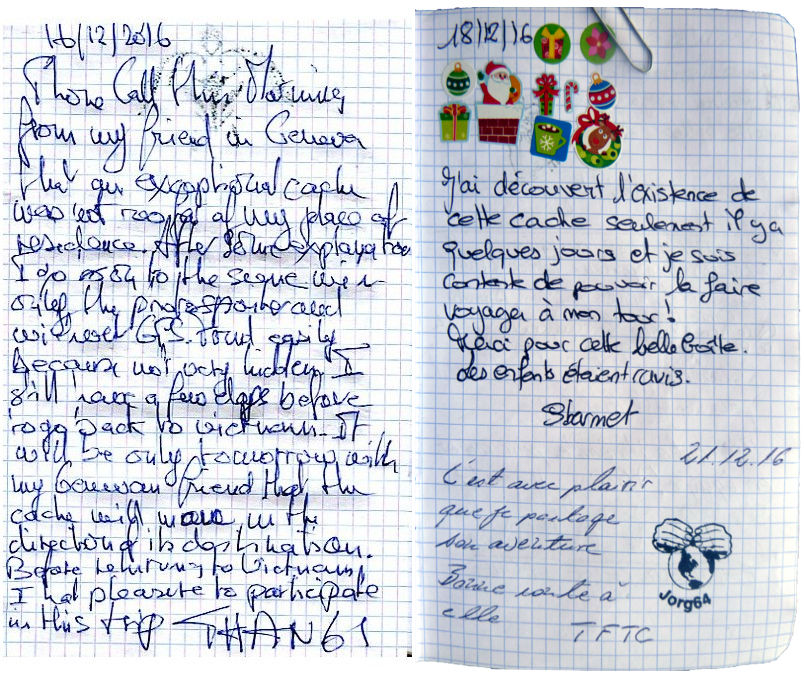 16/12/2016
Phone Call this Morning
from my friend in Geneva
that an exceptional cache
was not room of my place of
residence. After some explanation
I go to the
only the
with GPS. found easily
because not very hidden. I
still have a few days before
to go back to vietnam. It
will be only tomorrow with
my Genevan friend that the
cache will move in the
direction of its destination.
Before returning to Vietnam,
I had pleasure to participate
in this trip THAN61
18/12/16
J'ai découvert l'existence de
cette cache seulement il y a
quelques jours et je suis
contente de pouvoir la faire
voyager à mon tour!
Merci pour cette belle boîte.
des enfants étaient ravis.
Starmet
21.12.16
C'est avec plaisir
que je partage
son aventure
Bonne route à
elle
TFTC
Jorg64